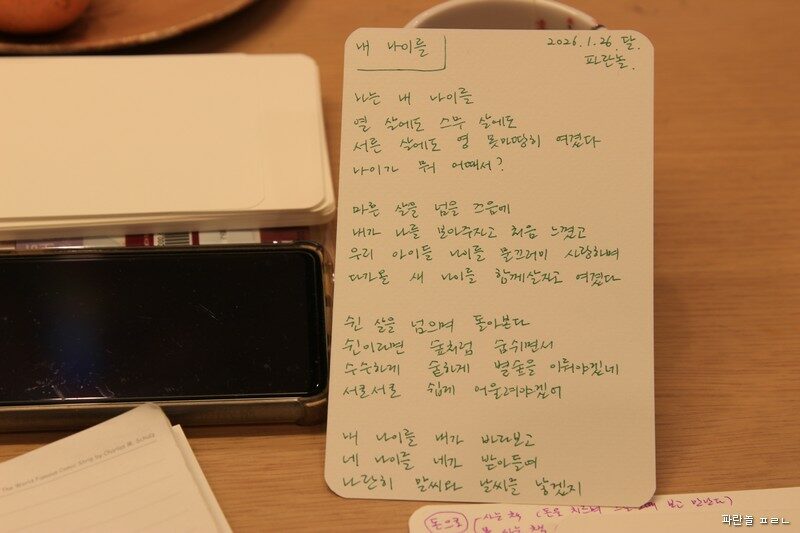 내 나이를
2026.1.26.달.
파란놀.
나는 내 나이를
열 살에도 스무 살에도
서른 살에도 영 못마땅히 여겼다
나이가 뭐 어때서?
마흔 살을 넘을 즈음에
내가 나를 보아주자고 처음 느꼈고
우리 아이들 나이를 물끄러미 사랑하며
다가올 새 나이를 함께살자고 여겼다
쉰 살을 넘으며 돌아본다
쉰이라면 숲처럼 숨쉬면서
수수하게 숱하게 별숲을 이뤄야겠네
서로서로 쉽게 어울려야겠어
내 나이를 내가 바라보고
네 나이를 네가 받아들여
나란히 말씨와 날씨를 낳겠지
The World Famous Comic Song by Charles M. Schulz
돈으로
사는 책 (돈을 치르며 보고 만난다)
파란놀 ㅍㄹㄴ